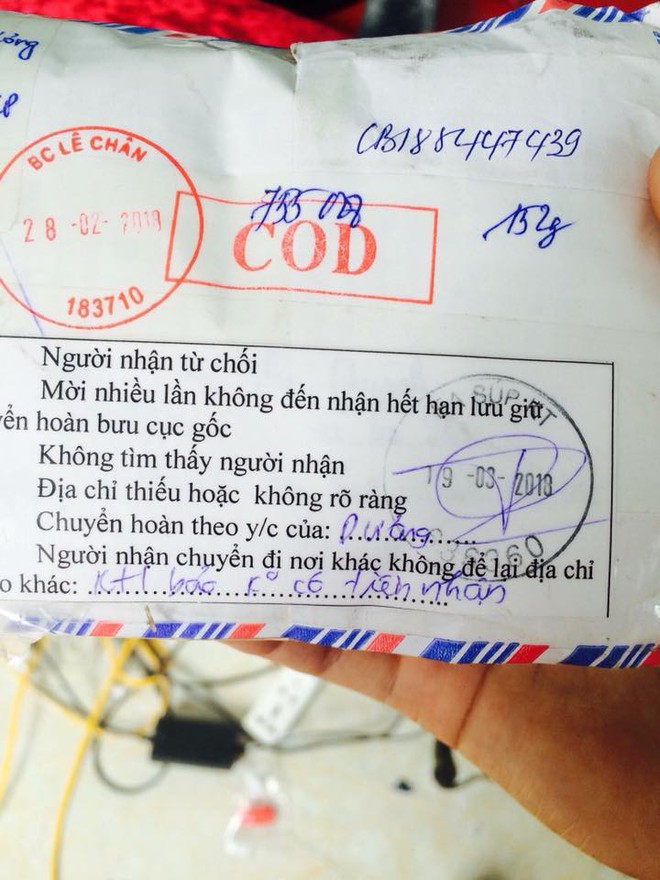 CB188447439
BC LÊ CHÂN
28-02-2018
183710
COD
152g
Người nhận từ chối
Mời nhiều lần không đến nhận hết hạn lưu giữ
ển hoàn bưu cục gốc
Không tìm thấy người nhận
Địa chỉ thiếu hoặc không rõ ràng
19-03-2018
Chuyển hoàn theo y/c của:
Người nhận chuyển đi nơi khác không để lại địa chỉ
o khác: KH báo k° có tiền nhận